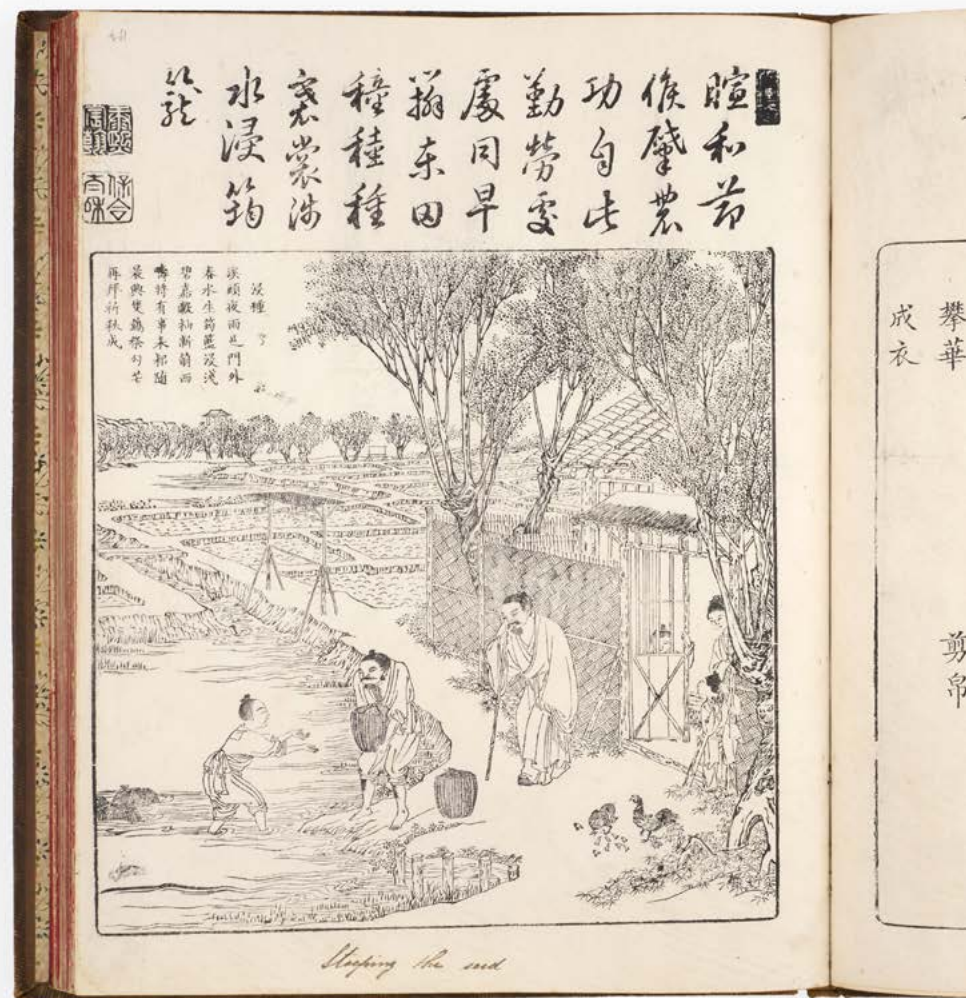 暄和節
候肇農
功自此
勤勞處
處同早
辦東田
穜稑種
褰裳涉
水浸筠
籠
康熙宸翰
保合太和
浸種
溪頭夜雨足門外
春水生筠籃浸淺
碧嘉穀抽新萌西
疇將有事耒耜隨
晨興隻鷄祭勾芒
再拜祈秋成
Steeping the seed
攀華
成衣
剪帛